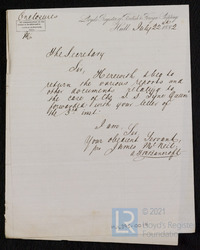 Enclosures
Lloyd's Register of British & Foreign Shipping
Hull July 22nd 1882
The Secretary
Sir, Herewith I beg to
return the various reports and
other documents relating to
the case of the S.S. "Tyne Queen"
forwarded with your letter of
the 3rd inst.
I am, Sir
Your obedient Servant,
pro James McNeil
© 2021
Lloyd's Register
Foundation